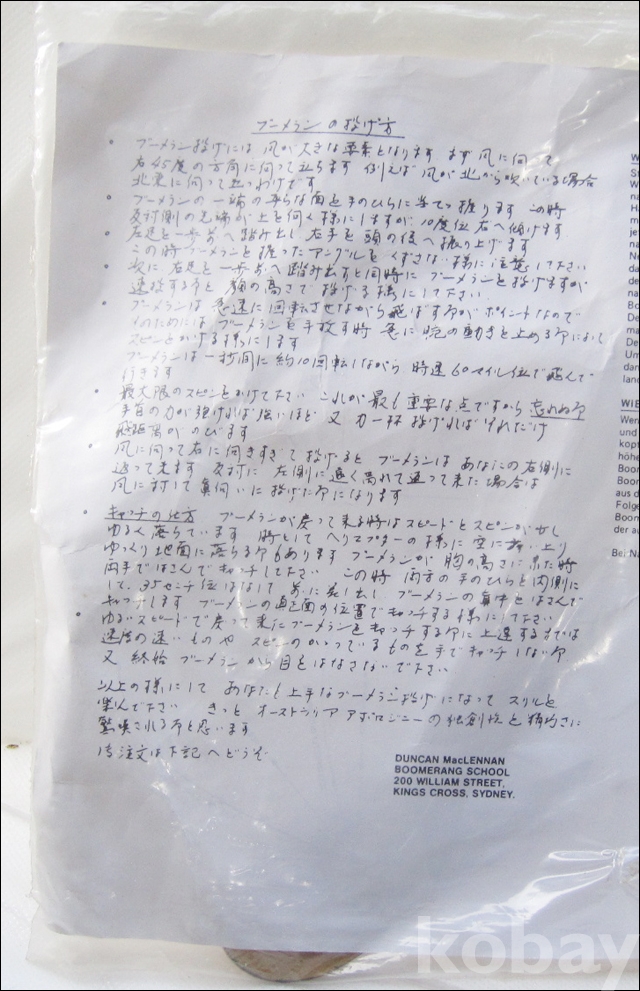 ブーメランの投げ方
• ブーメラン投げには 風が大きな要素となります まず風に向って
右45度の方向に向って立ちます 例えば 風が北から吹いている場合
北東に向って立つわけです
• ブーメランの一端の平らな面を手のひらに当てて握ります この時
反対側の先端が上を向く様にしますが、10度位右へ傾けます
• 左足を一歩前へ踏み出し 右手を頭の後へ振り上げます
この時ブーメランを握ったアングルをくずさない様に注意して下さい
• 次に 右足を一歩前へ踏み出すと同時に ブーメランを投げますが
速投する手を 顔の高さで投げる様にして下さい
• ブーメランは 急速に回転させながら飛ばす事がポイントなので
そのためには ブーメランを手放す時 急に腕の動きを止める事によって
スピンをかける様にします
ブーメランは一秒間に約10回転しながら 時速60マイル位で飛んで
行きます
• 最大限のスピンをかけて下さい これが最も重要な点ですから忘れぬ事
手首の力が強ければ強いほど 又 力一杯投げればそれだけ
飛距離がのびます
• 風に向って右に向きすぎて投げると ブーメランは あなたの右側に
返って来ます 反対に 左側に遠く離れて返って来た場合は
風に対して真向いに投げた事になります
• キャッチの仕方 ブーメランが戻って来る時はスピードとスピンが少し
ゆるく落ちています 時として ヘリコプターの様に空に舞い上り
ゆっくり地面に落ちる事もあります ブーメランが胸の高さに来た時
両手ではさんでキャッチして下さい この時 両方の手のひらを内側に
して、35センチ位はなして 前に差し出し ブーメランの真中をはさんで
キャッチします ブーメランの真正面の位置でキャッチする様にして下さい
• ゆるいスピードで戻って来たブーメランをキャッチする事に上達するまでは
速度の速いものや スピンのかかっているものを手でキャッチしない事
又 終始 ブーメランから目をはなさないで下さい
以上の様にして あなたも上手なブーメラン投げになって スリルを
楽んで下さい きっと オーストラリア アボロジニーの独創性と精巧さに
驚嘆される事と思います
御注文は下記へどうぞ
DUNCAN MacLENNAN
BOOMERANG SCHOOL
200 WILLIAM STREET,
KINGS CROSS, SYDNEY.
WIE
Wen
und
kopf
höhe
Boom
aus d
Folge
Boom
der au
Bei Na
kobay